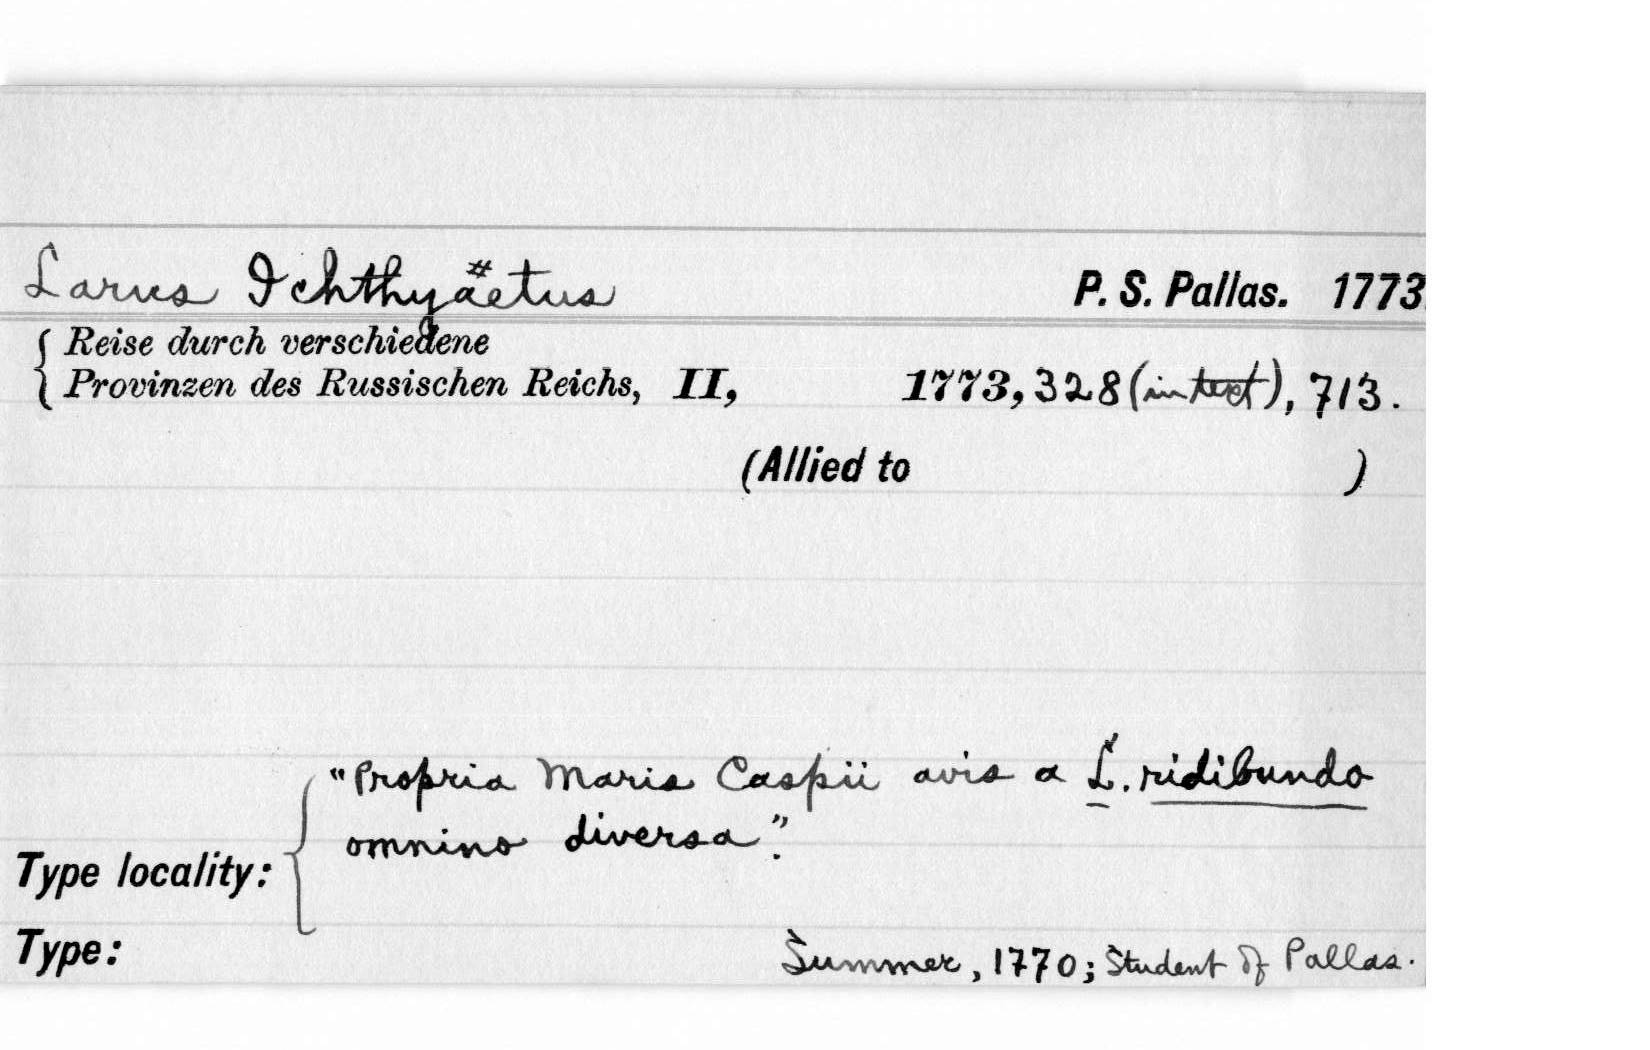 Larus Ichthyäetus P. S. Pallas. 1773.
{ Reise durch verschiedene
Provinzen des Russischen Reichs, II, 1773, 328 (in text), 713.
(Allied to )
"Propria Maris Caspii avis a L. ridibundo
omnino diversa".
Type locality:
Type: Summer, 1770; Student of Pallas.